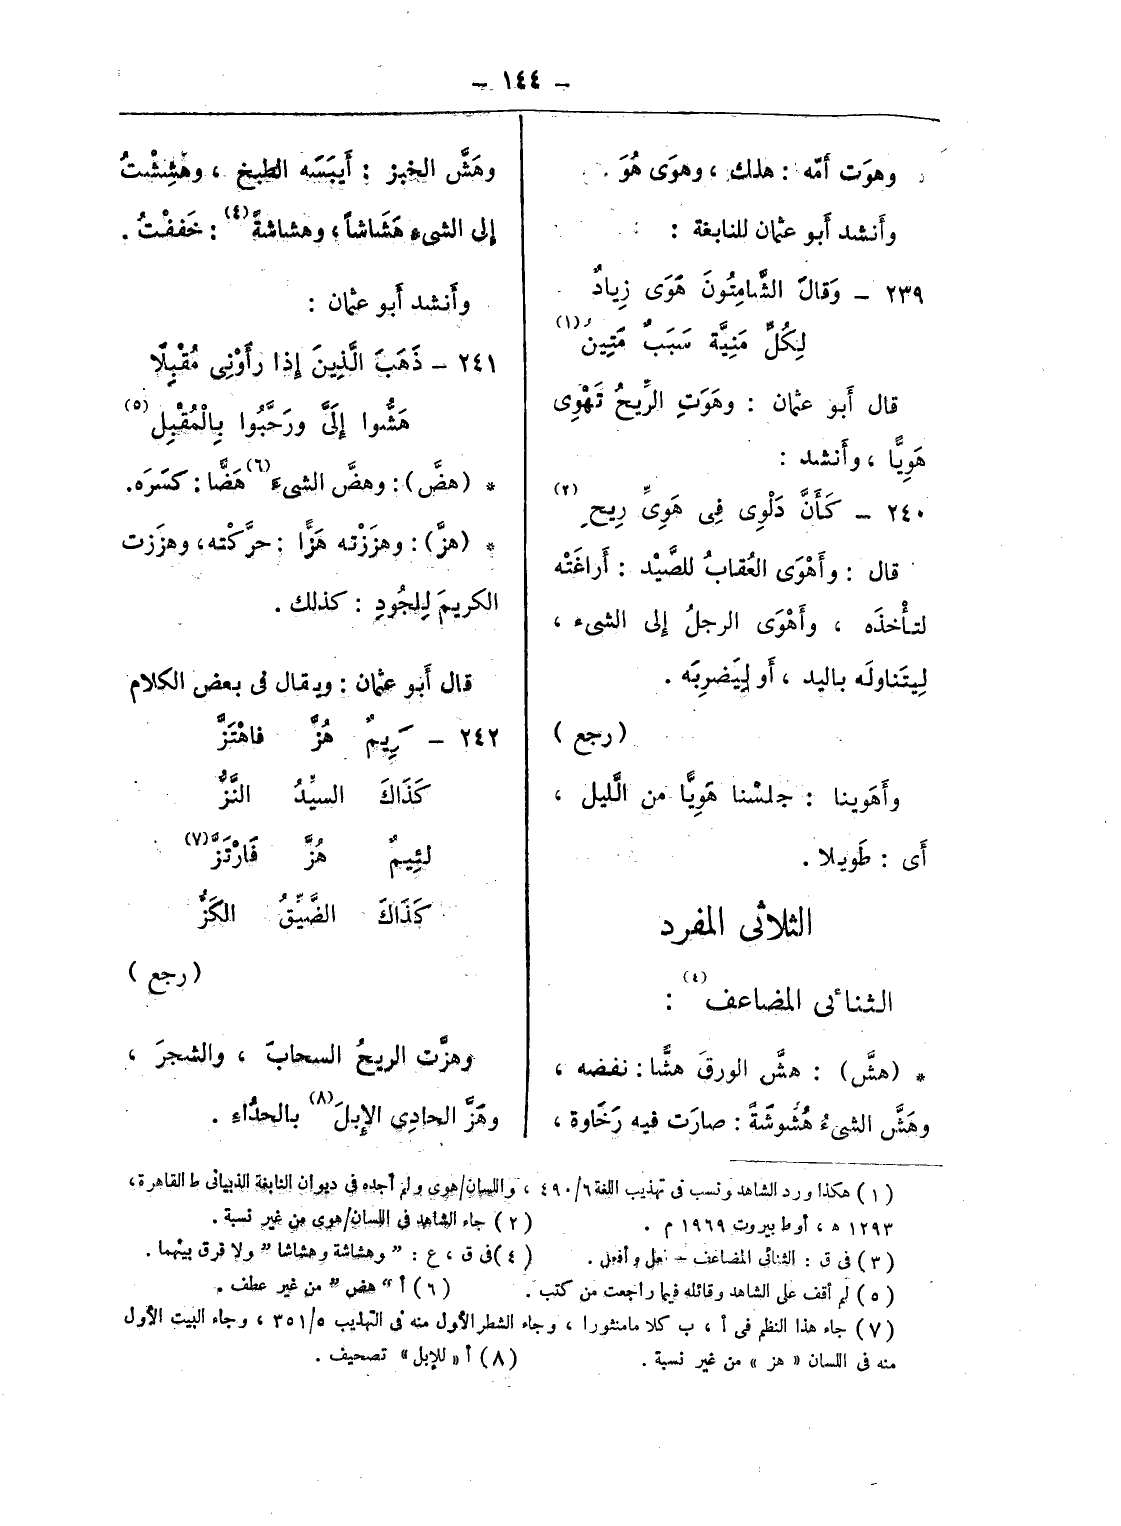 – ١٤٤ –
وهوَت أمّه : هلك ، وهوَى هُوَ .
وأَنشد أَبو عثمان للنابغة :
٢٣٩ – وَقالَ الشَّامِتُونَ هَوَى زِيادٌ
لِكُلِّ مَنِيَّة سَبَبٌ مَتِينُ (١)
قال أَبو عثمان : وهَوَتِ الرِّيحُ تَهْوِى
هَوِيًّا ، وأَنشد :
٢٤٠ – كَأَنَّ دَلْوِى فِى هَوِىِّ رِيحِ (٢)
قال : وأَهْوَى العُقابُ للصَّيْد : أَراغَتْه
لتأْخذَه ، وأَهْوَى الرجلُ إلى الشىء ،
لِيتَناولَه باليد ، أَو لِيَضرِبَه .
(رجع )
وأَهَوينا : جلسْنا هَوِيًّا من الَّليل ،
أَى : طَويلا .
الثلاثى المفرد
الثنائى المضاعف (٤) :
* (هشَّ) : هشَّ الورقَ هشًّا : نفضه ،
وهَشَّ الشىءُ هُشُوشَةً : صارَت فيه رَخَاوة ،
وهَشَّ الخبز : أَيبَسَه الطبخ ، وهْشِشْتُ
إلى الشىء هَشَاشاً ، وهشاشةً (٤) : خَففْتُ .
وأَنشد أَبو عثمان :
٢٤١ – ذَهَبَ الَّذِينَ إذا رأَوْنِى مُقْبِلًا
هَشُّوا إلَىَّ ورَحَّبُوا بِالْمُقْبِلِ (٥)
* (هضَّ) : وهضَّ الشىءَ (٦) هَضًّا : كسَرَه.
* (هزَّ) : وهزَزْته هَزًّا : حرَّكْته، وهزَزت
الكريمَ لِلجُودِ : كذلك .
قال أَبو عثمان : ويقال فى بعض الكلام
٢٤٢ – كَرِيمٌ هُزَّ فاهْتَزَّ
كَذَاكَ السيِّدُ النَّزُّ
لئِيمٌ هُزَّ فَارْتَزَّ (٧)
كَذَاكَ الضَّيِّقُ الكَزُّ
(رجع )
وهزَّت الريحُ السحابَ ، والشجرَ ،
وهَزَّ الحادِى الإِبلَ (٨) بالحدُاءِ .
(١) هكذا ورد الشاهد ونسب فى تهذيب اللغة ٤٩٠/٦ ، واللسان/هوى ولم أجده فى ديوان النابغة الذبيانى ط القاهرة،
١٢٩٣ هـ ، أو ط بيروت ١٩٦٩ م . (٢) جاء الشاهد فى اللسان/هوى من غير نسبة .
(٣) فى ق : الثنائى المضاعف – فعل وأفعل . (٤) فى ق ، ع : ”وهشاشة وهشاشا“ ولا فرق بينهما .
(٥) لم أقف على الشاهد وقائله فيما راجعت من كتب . (٦) أ ”هض“ من غير عطف .
(٧) جاء هذا النظم فى أ ، ب كلاما منثورا ، وجاء الشطر الأول منه فى التهذيب ٣٥١/٥ ، وجاء البيت الأول
منه فى اللسان « هز » من غير نسبة . (٨) أ « للإبل » تصحيف .